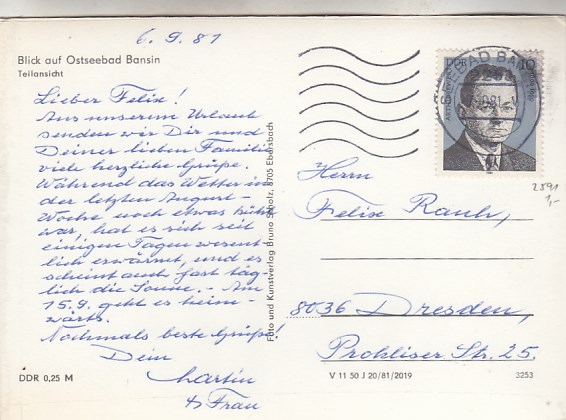 6.9.81
Blick auf Ostseebad Bansin
Teilansicht
Lieber Felix!
Aus unserem Urlaub
senden wir Dir und
Deiner lieben Familie
viele herzliche Grüße.
Während das Wetter in
der letzten August-
Woche noch etwas kühl
war, hat es sich seit
einigen Tagen wesent-
lich erwärmt, und es
scheint auch fast täg-
lich die Sonne. - Am
15.9. geht es heim-
wärts.
Nochmals beste Grüße!
Dein
Martin
& Frau
DDR 0,25 M
Foto und Kunstverlag Bruno Scholz, 8705 Ebersbach
SEEBAD BAN
DDR 10
Herrn
2591
1,-
Felix Rauh,
8036 Dresden,
Prohliser Str. 25
V 11 50 J 20/81/2019
3253